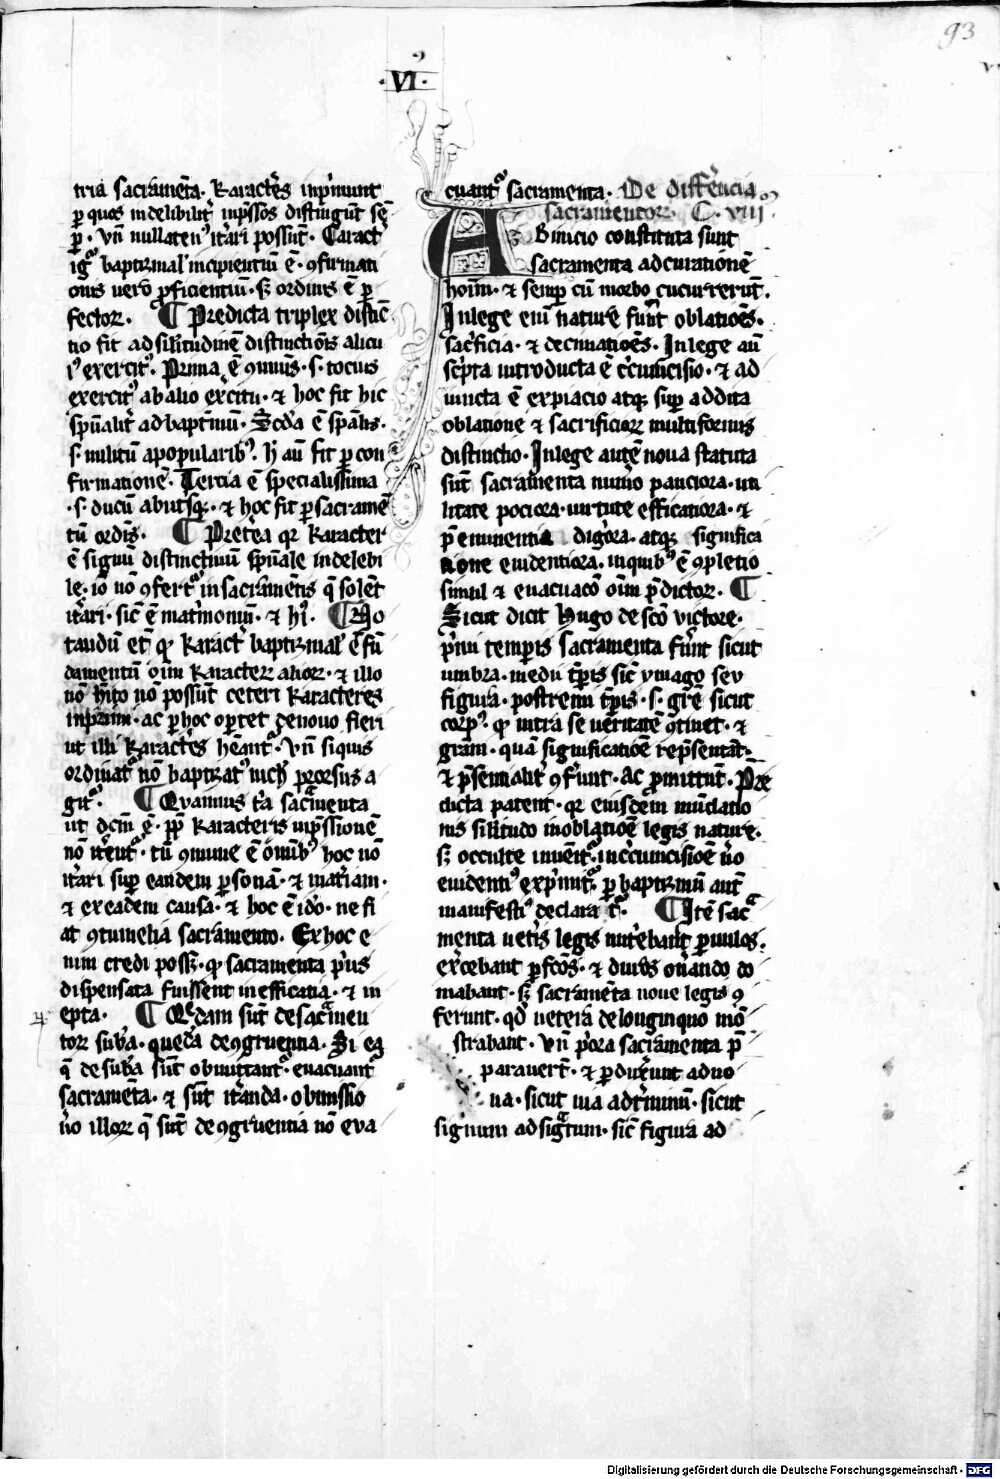 93
·VI·
tria sacramēta. Karactēs inp̄munt
ꝑ quos indelibilit̄ inp̄ssos distingūt sē
ꝑ. Vn̄ nullaten⁹ it̄ari possūt. Caract̄
igr̄ baptizmal̄ incipientiū ē. ꝯfirmati
onis uero ꝓficientiū. sꝫ ordinis ē ꝑ
fectoꝝ. ¶ Predicta triplex distinc̄
tio fit ad similitudinē distinctiōis alicu
i⁹ exercit⁹. Prima ē ꝯmunis. s. tocius
exercit⁹ ab alio exc̄itu. ⁊ hoc fit hic
spūalit̄ ad baptmū. Scd̄a ē spālis.
s. militū a popularib⁹. h̄ aū fit ꝑ con
firmationē. Tercia ē specialissima
.s. ducū ab utisqꝫ. ⁊ hoc fit ꝑ sacramē
tū ordīs. ¶ Pret̄ea qꝛ karacter
ē signū distinctiuū spūale indelebi
le. iō nō ꝯfert̄ in sacramētis q̄ solēt
it̄ari. sic̄ ē matrimoniū. ⁊ hī. ¶ No
tandū et̄ qꝫ karact̄ baptizmal̄ ē fū
damentū oīm karacteꝝ alioꝝ. ⁊ illo
nō h̄ito nō possūt ceteri karacteres
inprimi. ac ꝑ hoc oꝑtet denouo fieri
ut illi karactēs hēant̄. Vn̄ siquis
ordinat̄ nō baptizat⁹ nich̄ prorsus a
git̄. ¶ Quamuis tā sac̄menta
ut dcm̄ ē. ꝓꝑ karacteris inp̄ssionē
nō it̄ent̄. tn̄ ꝯmune ē omīb⁹ hoc nō
it̄ari suꝑ eandem ꝑsonā. ⁊ mat̄iam.
⁊ ex eadem causa. ⁊ hoc ē ido. ne fi
at ꝯtumelia sacramento. Ex hoc e
nim credi possꝫ. qꝫ sacramenta pius
dispensata fuissent inefficatia. ⁊ in
epta. ¶ Quedam sūt de sac̄men
toꝝ sub̄a. quedā de ꝯgruentia. Si ea
q̄ de sub̄a sūt obmittant̄. euacuant̄
sacramēta. ⁊ sūt it̄anda. obmissio
ūo illoꝝ q̄ sūt de ꝯgruentia nō eua
cuant̄ sacramenta. De diffēncia
sacramentoꝝ. C. viii.
AB inicio constituta sunt
sacramenta ad curationē
hoīm. ⁊ semꝑ cū morbo cucurrerūt.
In lege enī nature fuēnt oblatiōēs.
sac̄ficia. ⁊ decimatiōēs. In lege aū
sc̄pta introducta ē c̄cūmcisio. ⁊ ad
iuncta ē expiacio atqꝫ suꝑ addita
oblatione ⁊ sacrificioꝝ multiformis
distinctio. In lege autē noua statuta
sūt sacramenta numo pauciora. uti
litate pociora. uirtute efficatiora. ⁊
p̄eminentia digōra. atqꝫ significa
tione euidentiora. in quib⁹ ē ꝯpletio
simul ⁊ euacuacō oīm p̄dictoꝝ. ¶
Sicut dicit Hugo de scō victore.
p̄mi tempis sacramenta fūnt sicut
umbra. medii tꝑis sic̄ ymago seu
figura. postremi tꝑis. s. grē sicut
corp⁹. qꝫ intra se ueritatē ꝯtinet. ⁊
gram. quā significatiōē repsentāt.
⁊ p̄sentialit̄ ꝯferunt. ac ꝓmittunt. Pre
dicta patent. qꝛ eiusdem mūdatio
nis similitudo in oblatiōē legis nature.
sꝫ occulte inuēit̄. in c̄cūmcisiōē ūo
euidenti⁹ exp̄mit̄. ꝑ baptizmū aūt
manifesti⁹ declarat̄. ¶ Itē sac̄
menta uetis legis nutēbant paruulos.
exc̄ebant ꝓfcōs. ⁊ duros on̄ando do
mabant. sꝫ sacramēta noue legis ꝯ
ferunt. qd̄ uetera de longinquo mō
strabant. Vn̄ p̄ora sacramenta p̄
parauert̄. ⁊ ꝑduxūnt ad no
ua. sicut uia ad t̄minū. sicut
signum ad sigtum. sic̄ figura ad
Digitalisierung gefördert durch die Deutsche Forschungsgemeinschaft - DFG